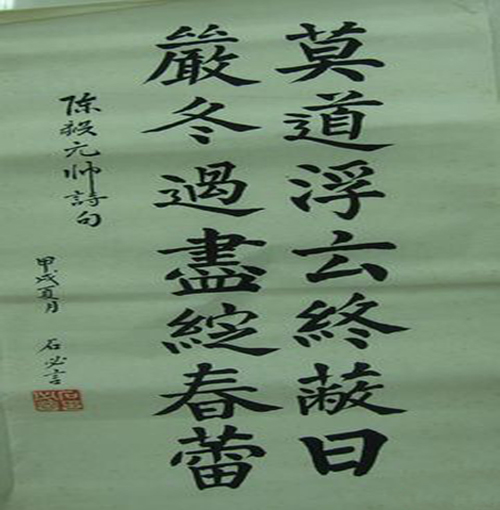 莫道浮云終蔽日
嚴冬過盡綻春蕾
陈毅元帅詩句
甲戌夏月
石必言